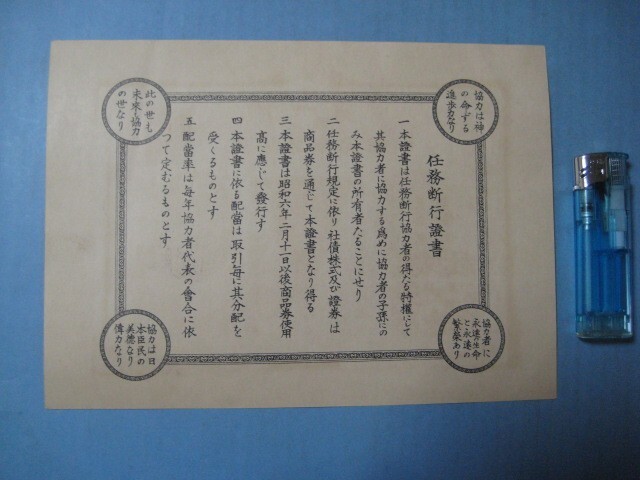 任務断行證書
一 本證書は任務断行協力者の得たる特權にして
其協力者に協力する爲めに協力者の子孫にの
み本證書の所有者たることにせり
二 任務断行規定に依り社債株式及び證券は
商品券を通じて本證書となり得る
三 本證書は昭和六年二月十一日以後商品券使用
高に應じて發行す
四 本證書に依る配當は取引毎に其分配を
受くるものとす
五 配當率は毎年協力者代表の會合に依
つて定むるものとす
協力は神
の命ずる
進歩なり
協力者に
永遠生命
と永遠の
繁榮あり
此の世も
未來も協力
の世なり
協力は日
本臣民の
美德なり
偉力なり